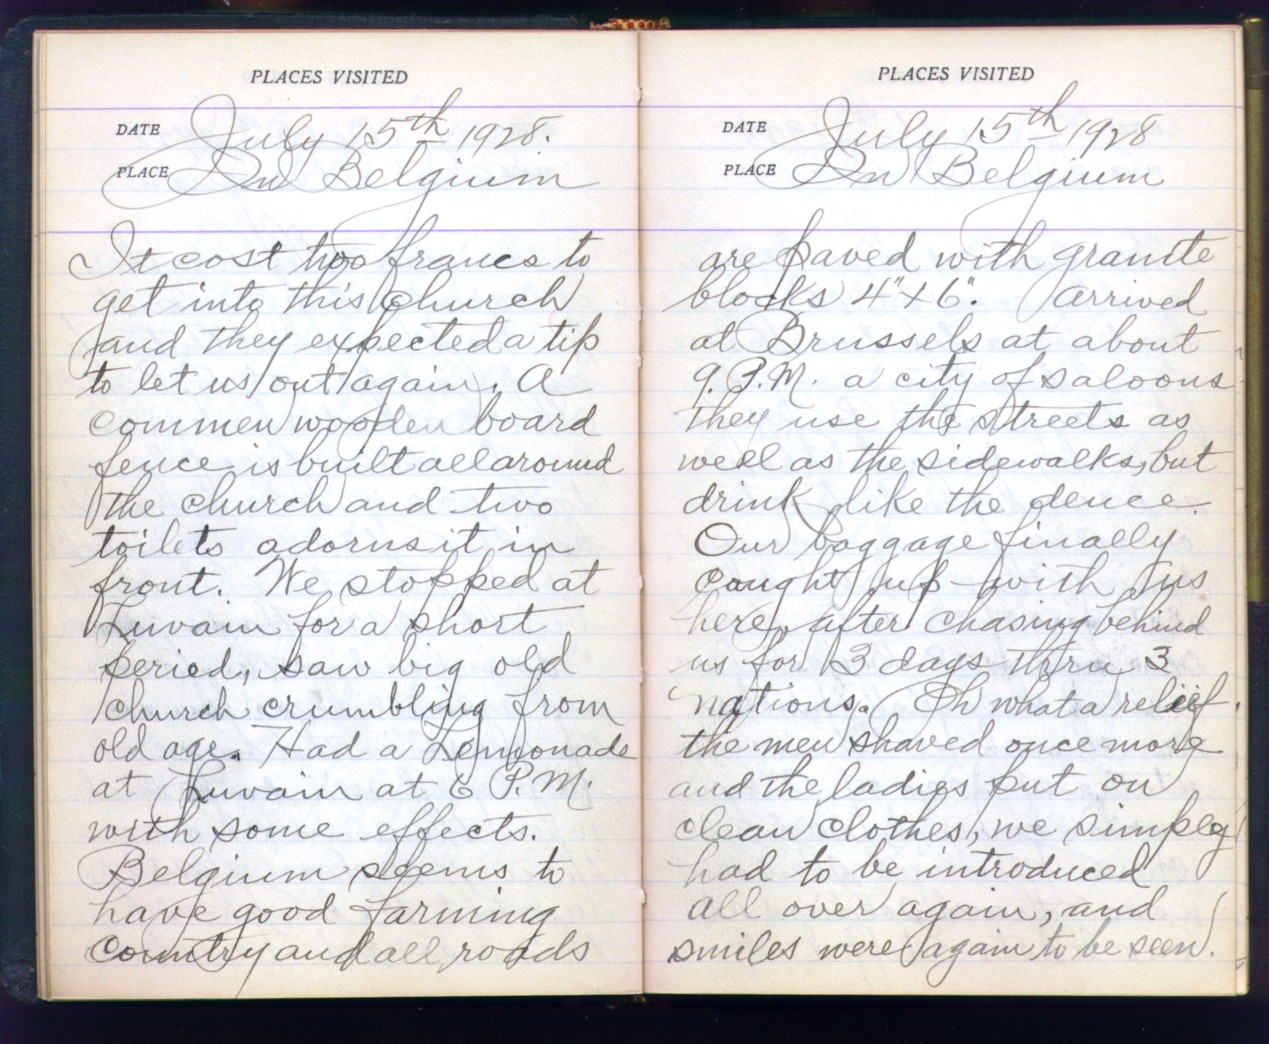 PLACES VISITED
DATE July 15th 1928.
PLACE In Belgium
It cost two francs to
get into this church
and they expected a tip
to let us out again. A
commen wooden board
fence is built all around
the church and two
toilets adorns it in
front. We stopped at
Luvain for a short
period, saw big old
church crumbling from
old age. Had a Lemonade
at Luvain at 6 P.M.
with some effects.
Belgium seems to
have good farming
country and all roads
PLACES VISITED
DATE July 15th 1928
PLACE In Belgium
are paved with granite
blocks 4" x 6". Arrived
at Brussels at about
9. P.M. a city of saloons
they use the streets as
well as the sidewalks, but
drink like the deuce.
Our baggage finally
caught up with us
here, after chasing behind
us for 3 days thru 3
nations. Oh what a relief.
the men shaved once more
and the ladies put on
clean clothes, we simpley
had to be introduced
all over again, and
smiles were again to be seen.